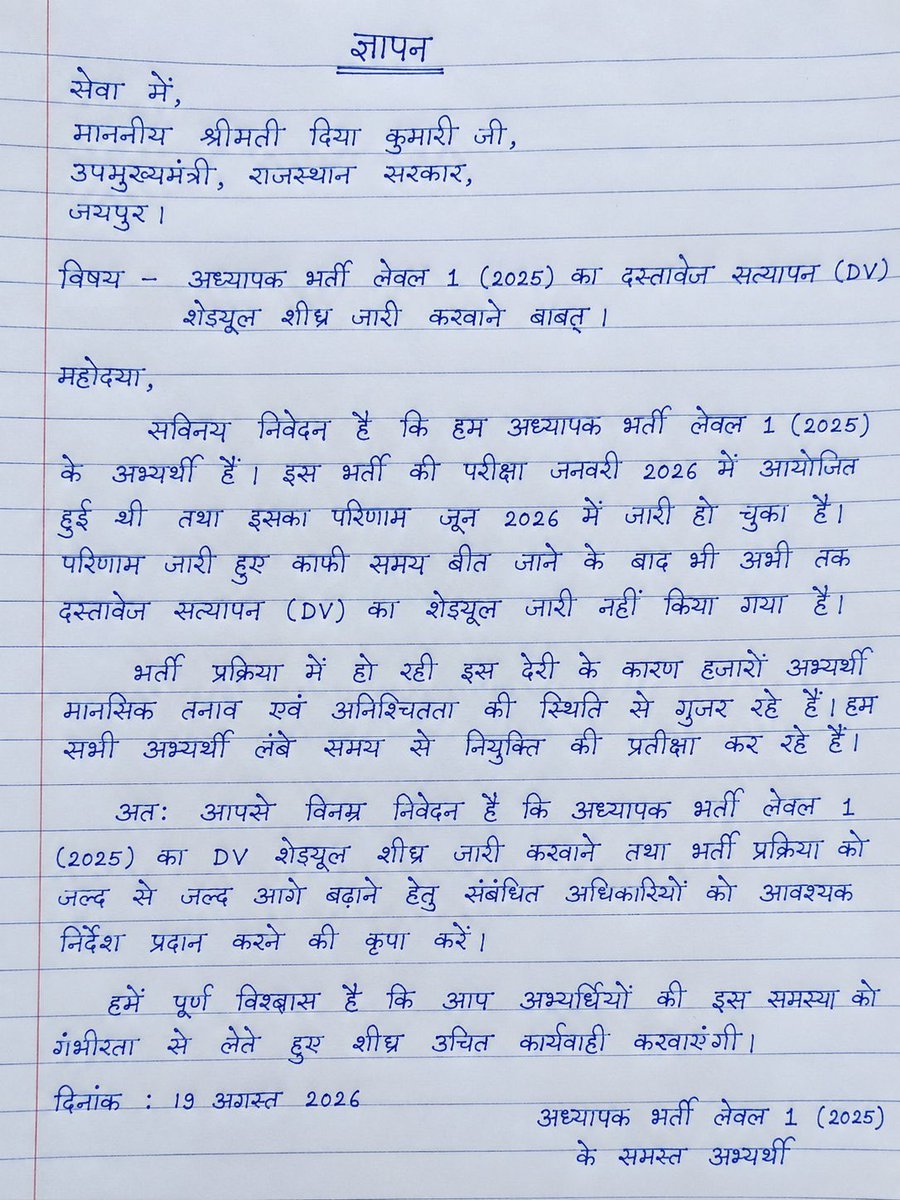 ज्ञापन
सेवा में,
माननीय श्रीमती दिया कुमारी जी,
उपमुख्यमंत्री, राजस्थान सरकार,
जयपुर।
विषय - अध्यापक भर्ती लेवल 1 (2025) का दस्तावेज सत्यापन (DV)
शेड्यूल शीघ्र जारी करवाने बाबत्।
महोदया,
सविनय निवेदन है कि हम अध्यापक भर्ती लेवल 1 (2025)
के अभ्यर्थी हैं। इस भर्ती की परीक्षा जनवरी 2026 में आयोजित
हुई थी तथा इसका परिणाम जून 2026 में जारी हो चुका है।
परिणाम जारी हुए काफी समय बीत जाने के बाद भी अभी तक
दस्तावेज सत्यापन (DV) का शेड्यूल जारी नहीं किया गया है।
भर्ती प्रक्रिया में हो रही इस देरी के कारण हजारों अभ्यर्थी
मानसिक तनाव एवं अनिश्चितता की स्थिति से गुजर रहे हैं। हम
सभी अभ्यर्थी लंबे समय से नियुक्ति की प्रतीक्षा कर रहे हैं।
अतः आपसे विनम्र निवेदन है कि अध्यापक भर्ती लेवल 1
(2025) का DV शेड्यूल शीघ्र जारी करवाने तथा भर्ती प्रक्रिया को
जल्द से जल्द आगे बढ़ाने हेतु संबंधित अधिकारियों को आवश्यक
निर्देश प्रदान करने की कृपा करें।
हमें पूर्ण विश्वास है कि आप अभ्यर्थियों की इस समस्या को
गंभीरता से लेते हुए शीघ्र उचित कार्यवाही करवाएंगी।
दिनांक : 19 अगस्त 2026
अध्यापक भर्ती लेवल 1 (2025)
के समस्त अभ्यर्थी